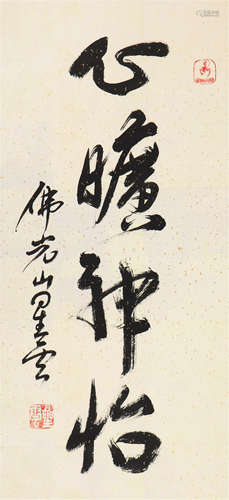 心曠神怡
佛光山星雲